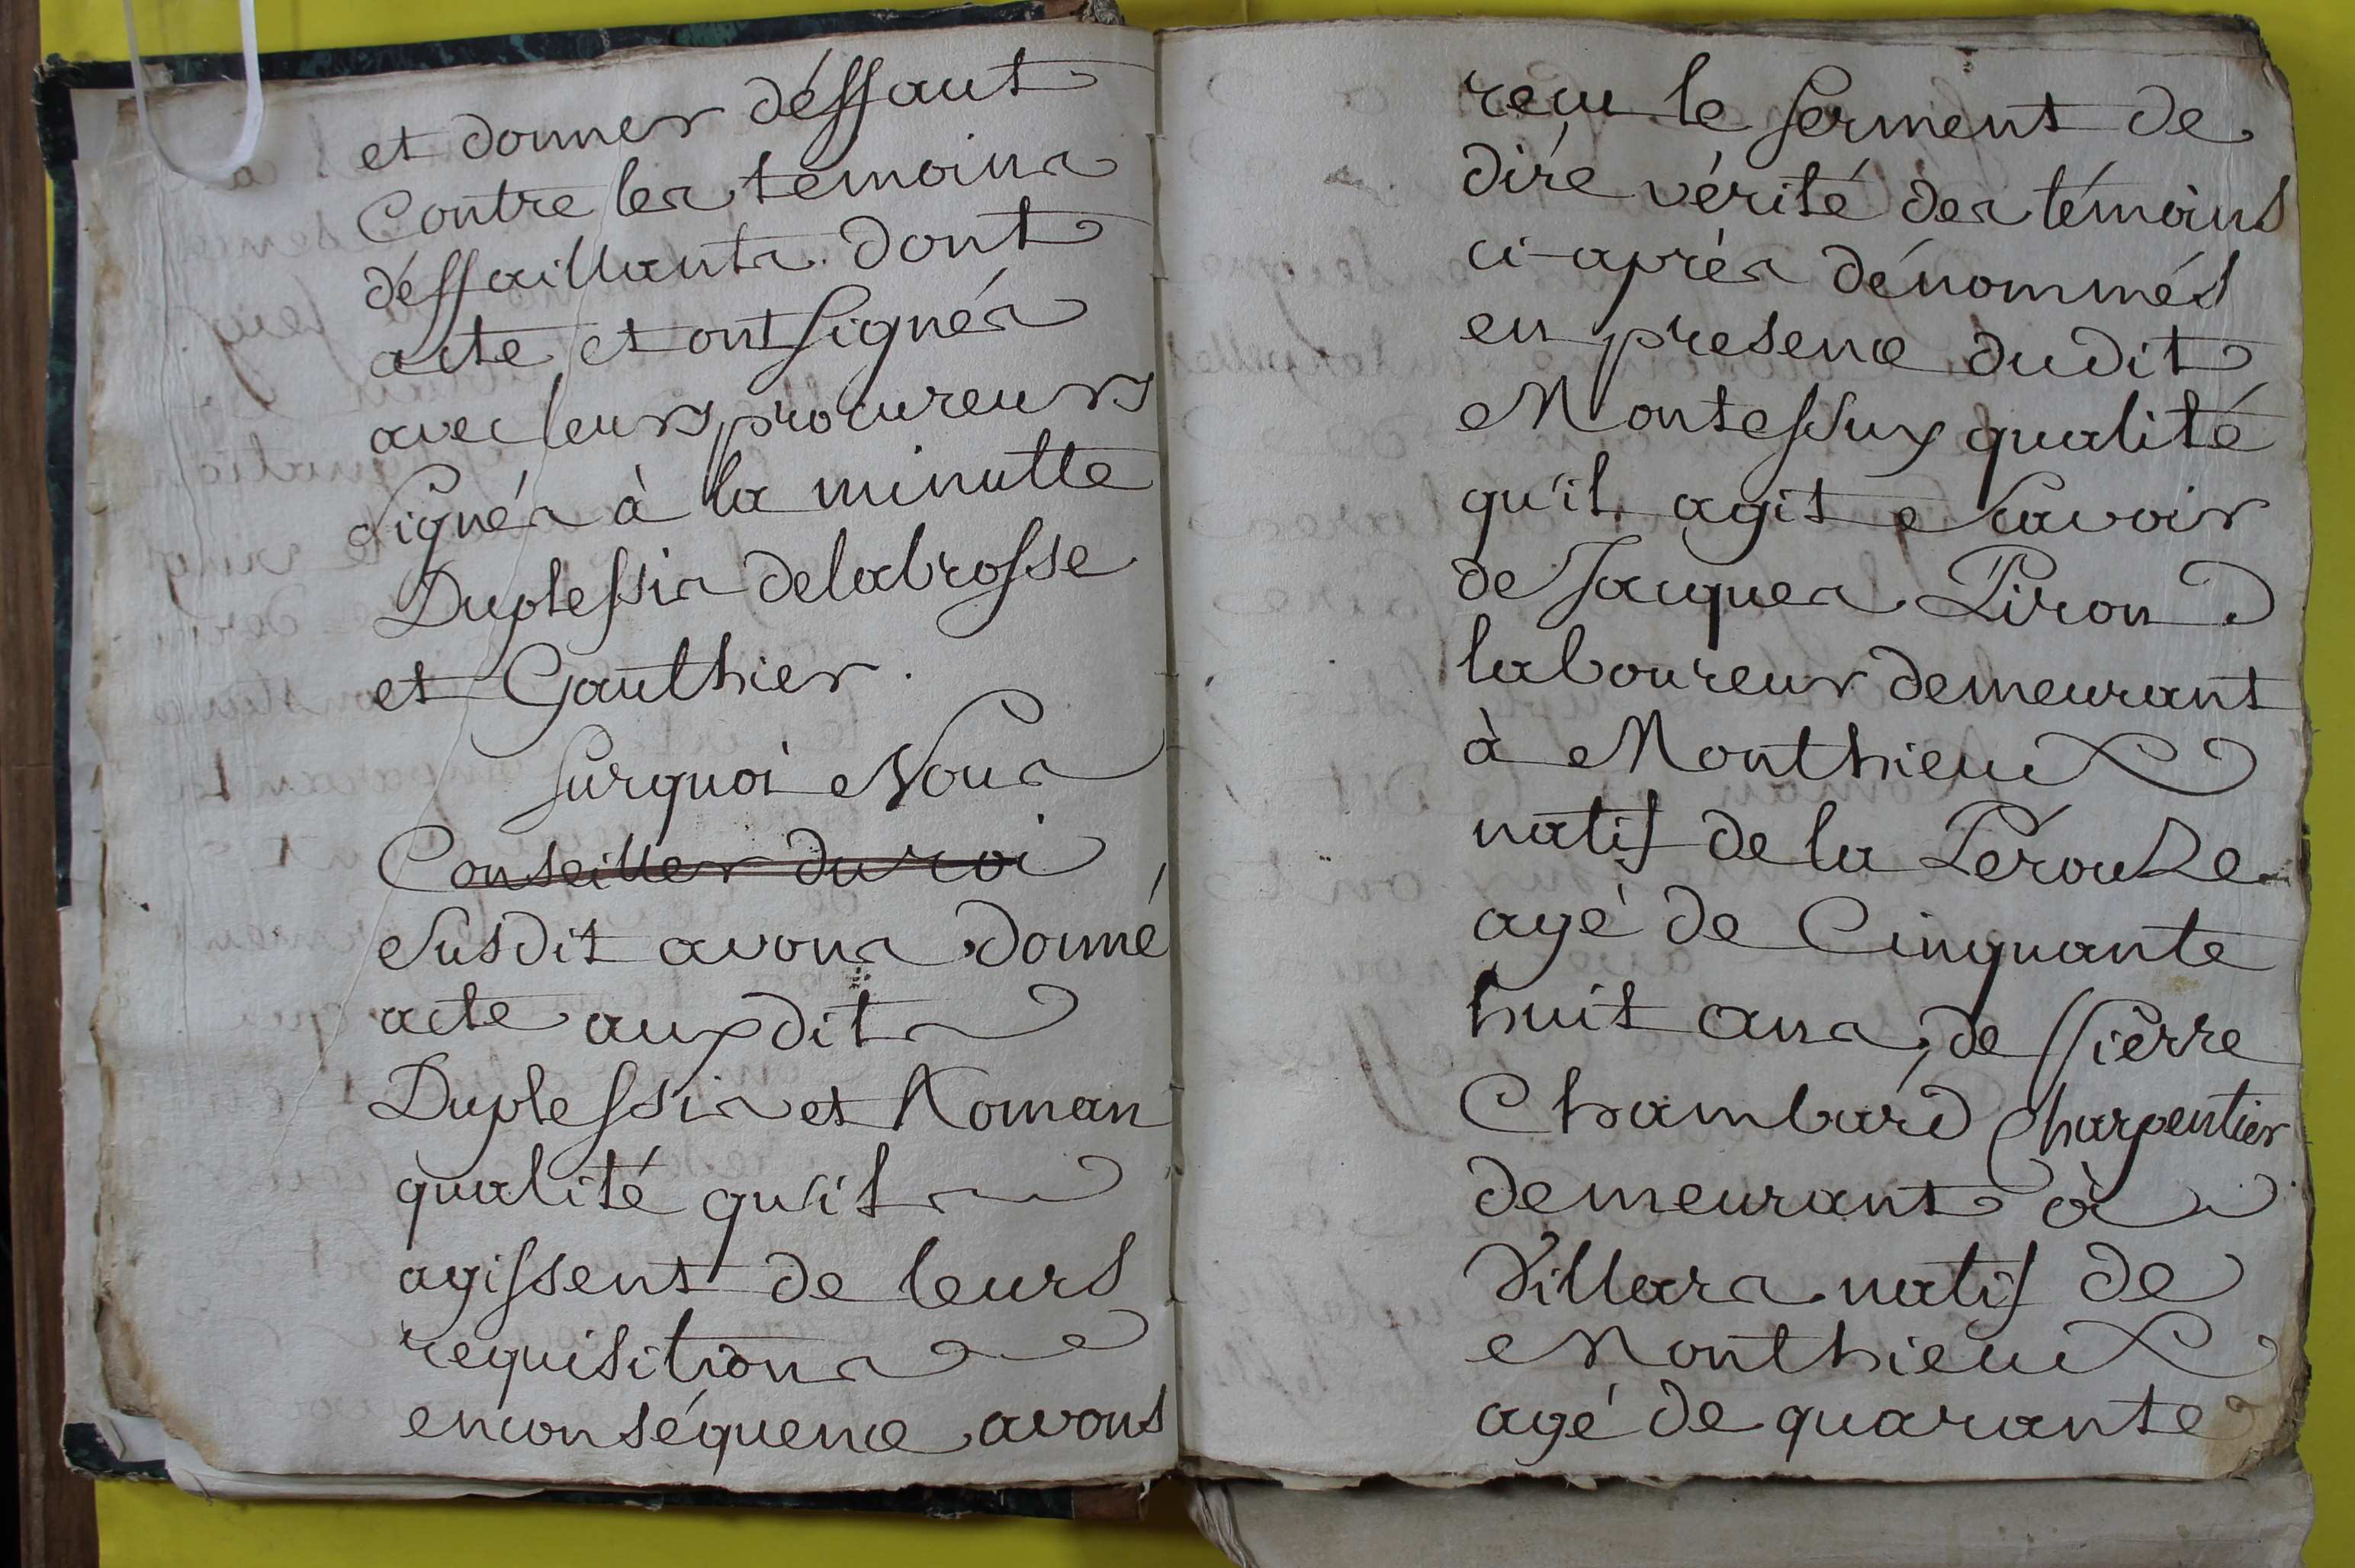 et donner déffaut
Contre les temoins
déffaillants. dont
acte et ont signés
avec leurs procureurs
signés à la minutte
Duplessis delabrosse
et Gauthier.
surquoi Nous
Conseiller du roi
susdit avons donné
acte auxdits
Duplessis et Roman
qualité qu'ils
agissent de leurs
requisitions
enconséquence avons
recu le serment de
dire vérité des témoins
ci-après dénommés
en presence dudit
Montessuy qualité
qu'il agit scavoir
de Jacques Piron
laboureur demeurant
à Monthieux
natif de la Pérouze
agé de Cinquante
huit ans, de Pierre
Chambard Charpentier
demeurant à
Villars natif de
Monthieux
agé de quarante